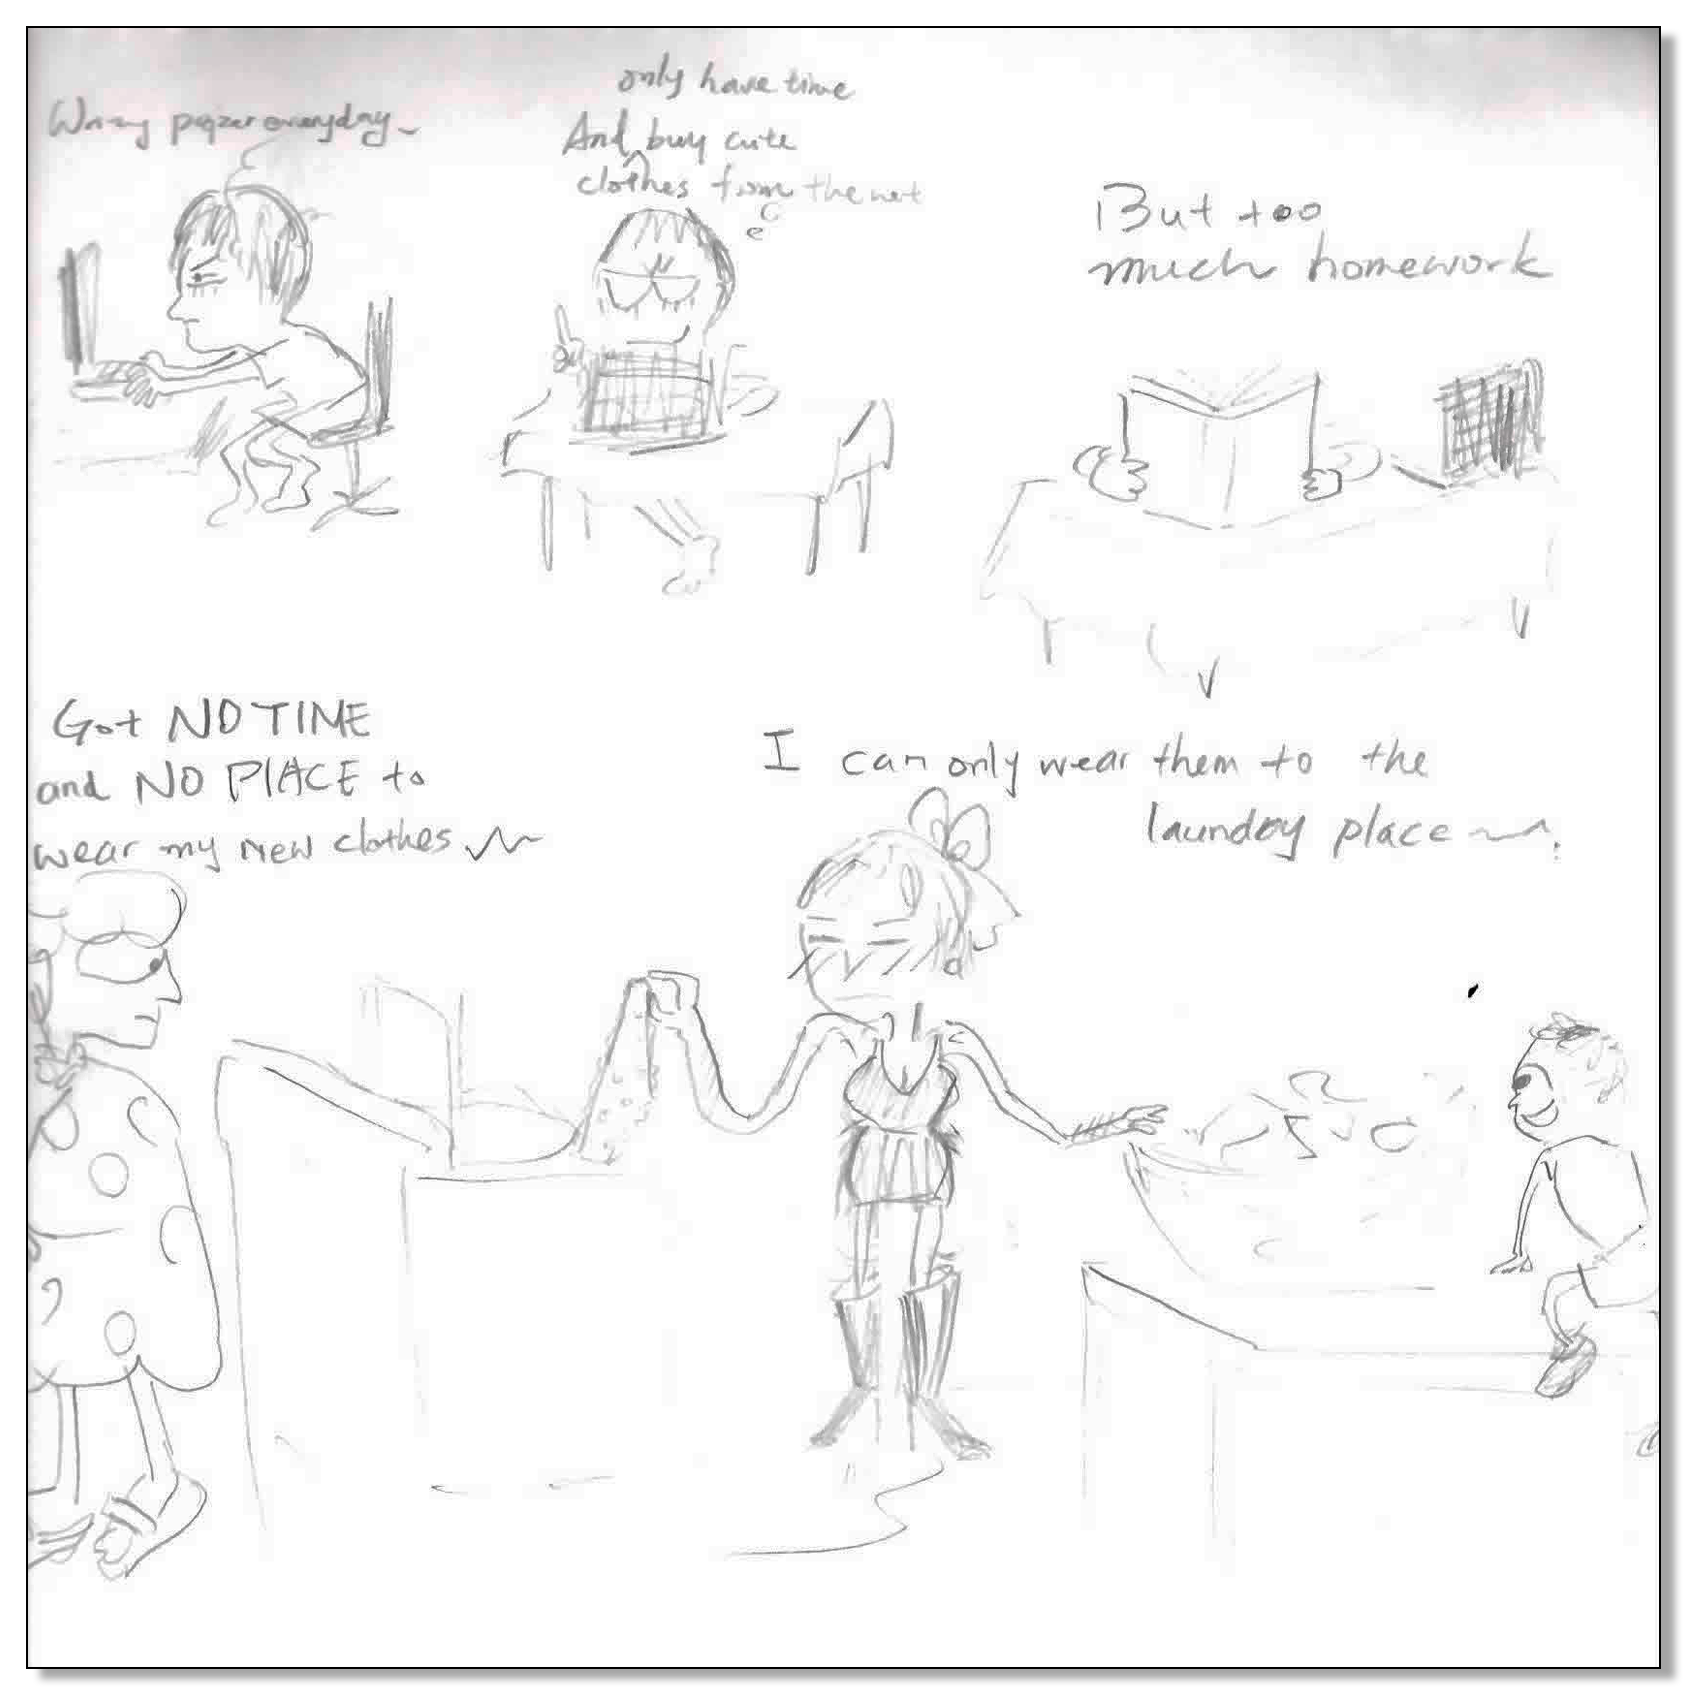 paper everyday
only have time
And buy cute
clothes from the net
But too
much homework
Got NO TIME
and NO PLACE to
wear my new clothes
I can only wear them to the
laundry place